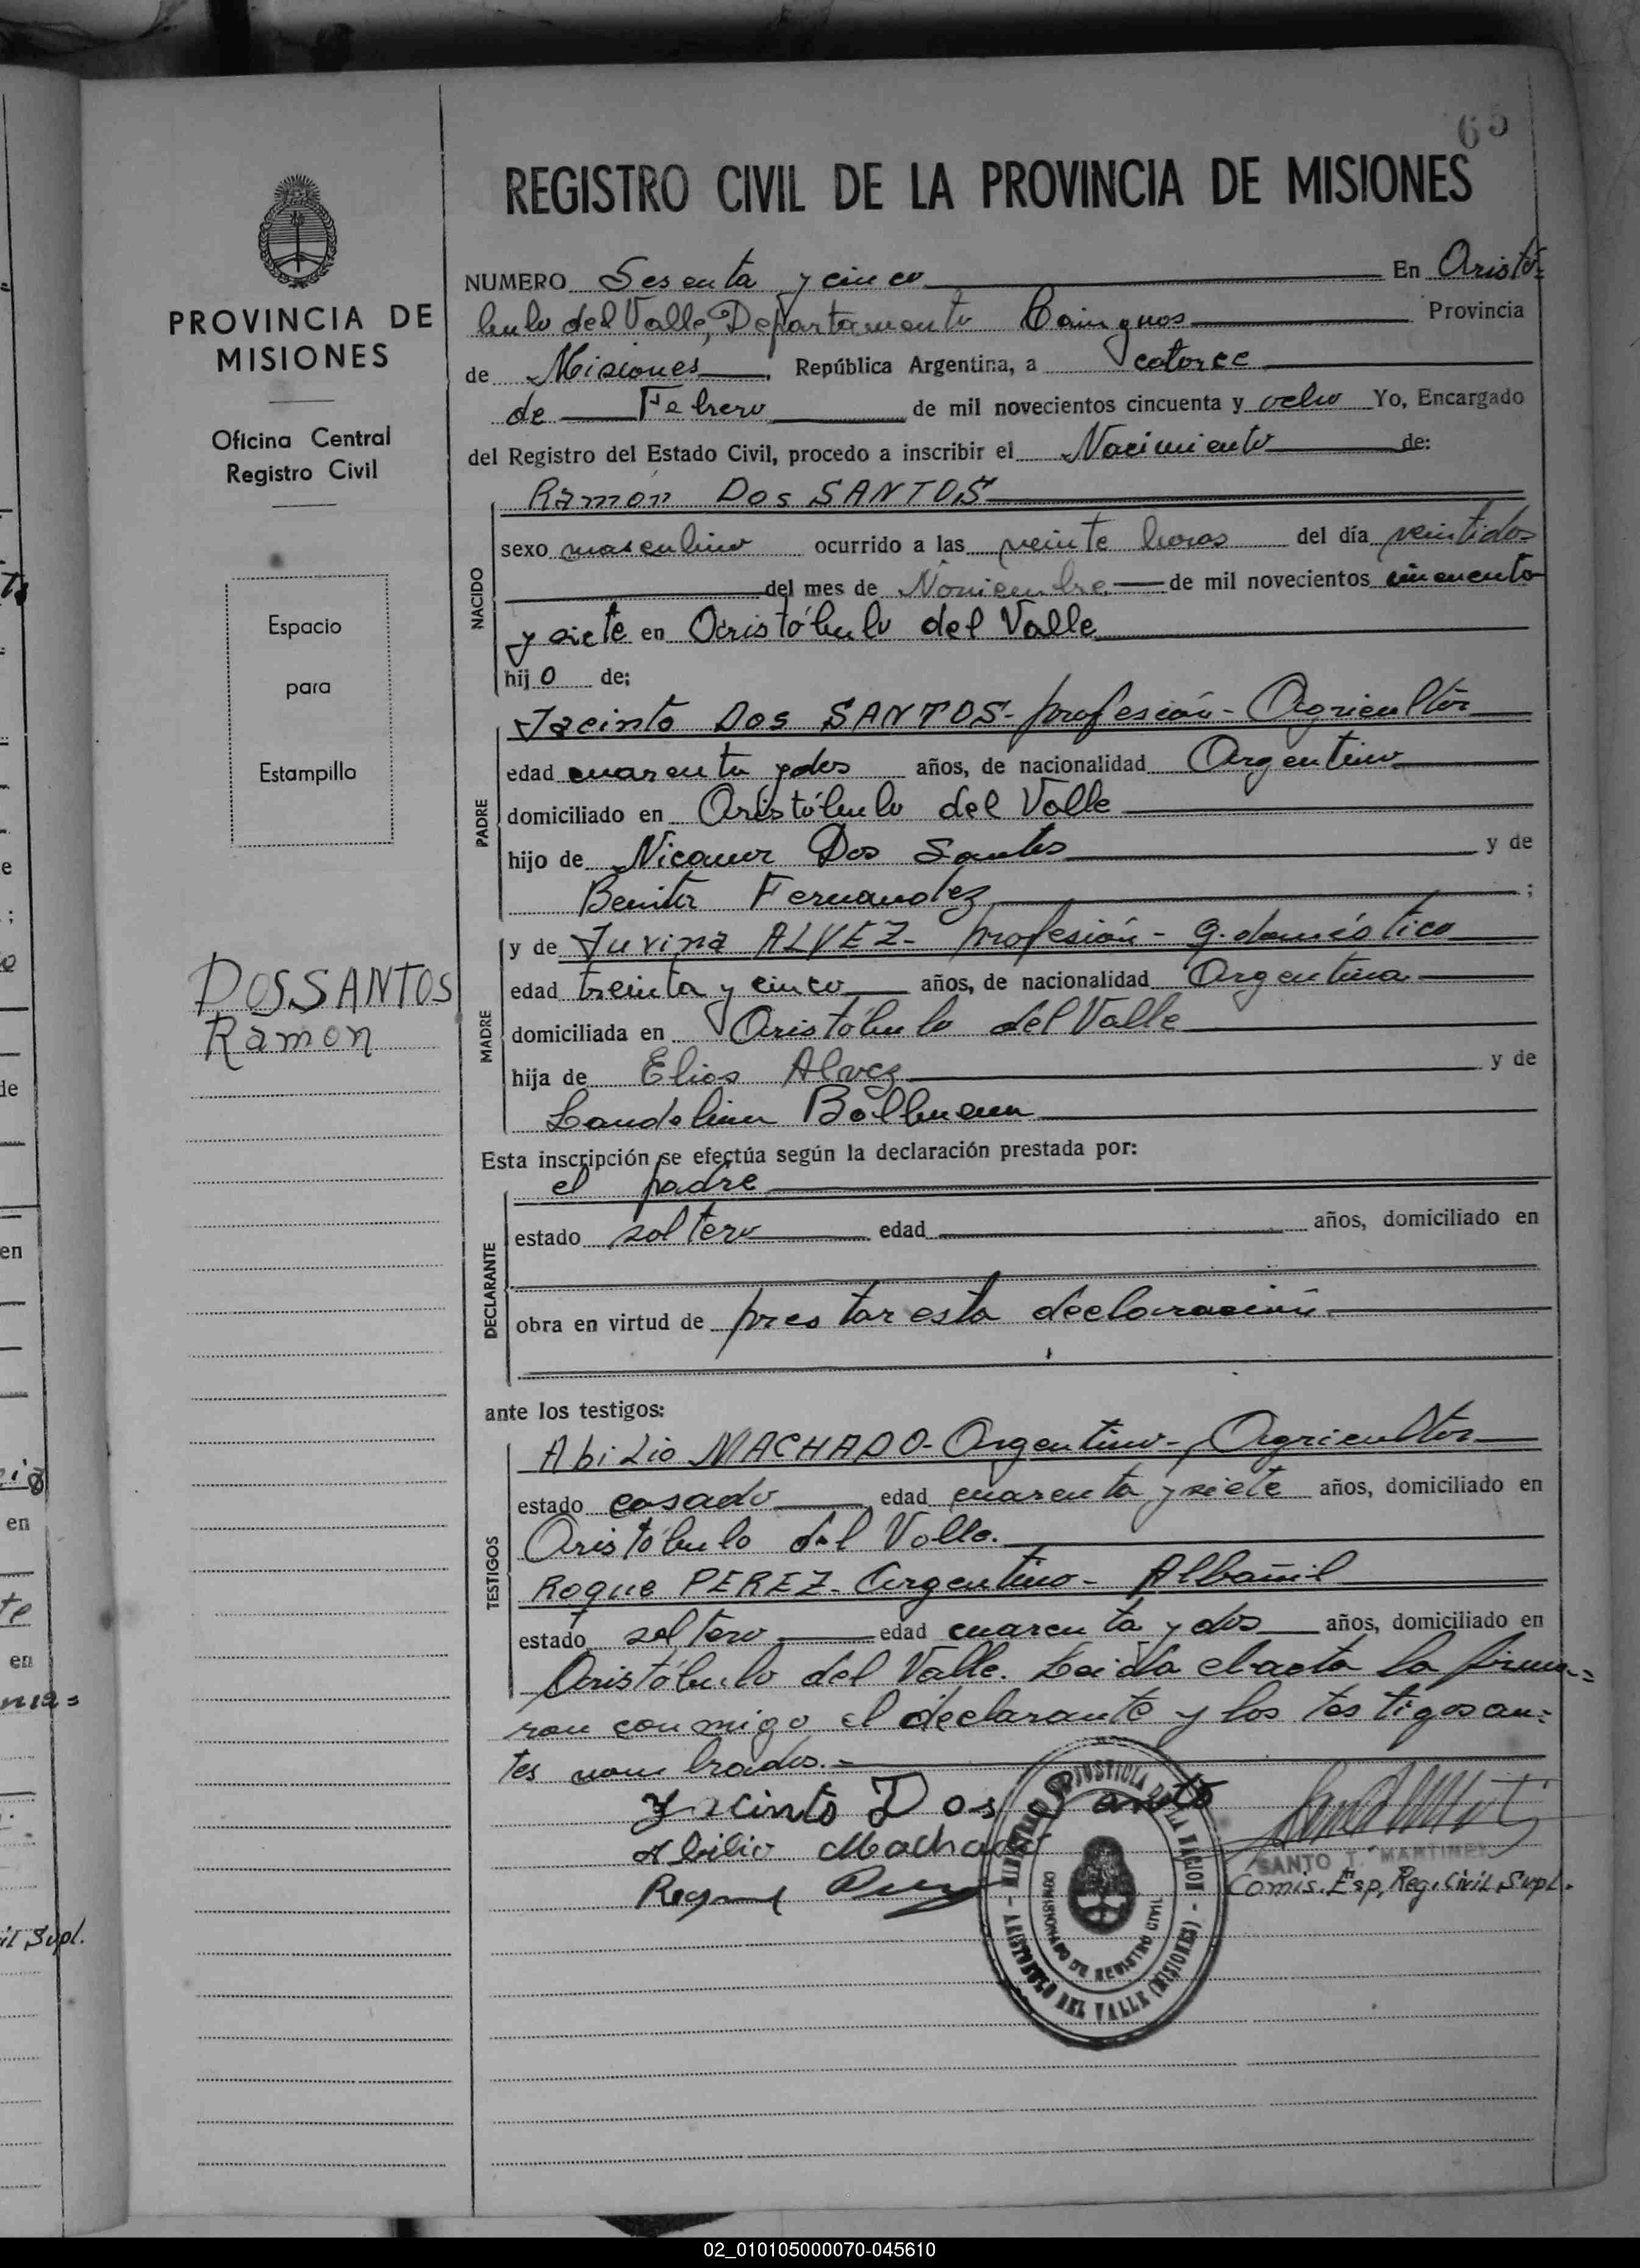 65
REGISTRO CIVIL DE LA PROVINCIA DE MISIONES
PROVINCIA DE
MISIONES
Oficina Central
Registro Civil
Espacio
para
Estampilla
DOS SANTOS
Ramón
NUMERO Sesenta y cinco En Aristó=
bulo del Valle, Departamento Cainguas Provincia
de Misiones, República Argentina, a catorce
de Febrero de mil novecientos cincuenta y ocho Yo, Encargado
del Registro del Estado Civil, procedo a inscribir el Nacimiento de:
NACIDO
Ramón Dos SANTOS
sexo masculino ocurrido a las veinte horas del día veintidos
del mes de Noviembre de mil novecientos cincuenta
y siete en Aristóbulo del Valle
hijo de:
PADRE
Jacinto Dos SANTOS- profesión- Agricultor
edad cuarenta y dos años, de nacionalidad Argentino
domiciliado en Aristóbulo del Valle
hijo de Nicanor Dos Santos y de
Benita Fernandez ;
MADRE
y de Juvina ALVEZ- profesión- q. doméstico
edad treinta y cinco años, de nacionalidad Argentina
domiciliada en Aristóbulo del Valle
hija de Elias Alvez y de
Laudelina
Esta inscripción se efectúa según la declaración prestada por:
DECLARANTE
el padre
estado soltero edad años, domiciliado en
obra en virtud de prestar esta declaración
ante los testigos:
TESTIGOS
Abilio MACHADO- Argentino-, Agricultor
estado casado edad cuarenta y siete años, domiciliado en
Aristóbulo del Valle.
Roque PEREZ- Argentino- Albañil
estado soltero edad cuarenta y dos años, domiciliado en
Aristóbulo del Valle. Leida el acta la firma=
ron conmigo el declarante y los testigos an=
tes nombrados.=
Jacinto Dos Santo
Abilio Machado
Roque Perez
MINISTERIO DE JUSTICIA DE LA NACION
COMISIONADO DE REGISTRO CIVIL
ARISTOBULO DEL VALLE (MISIONES)
SANTO T. MARTINEZ
Comis. Esp, Reg. Civil Supl.
il Supl.
02_010105000070-045610